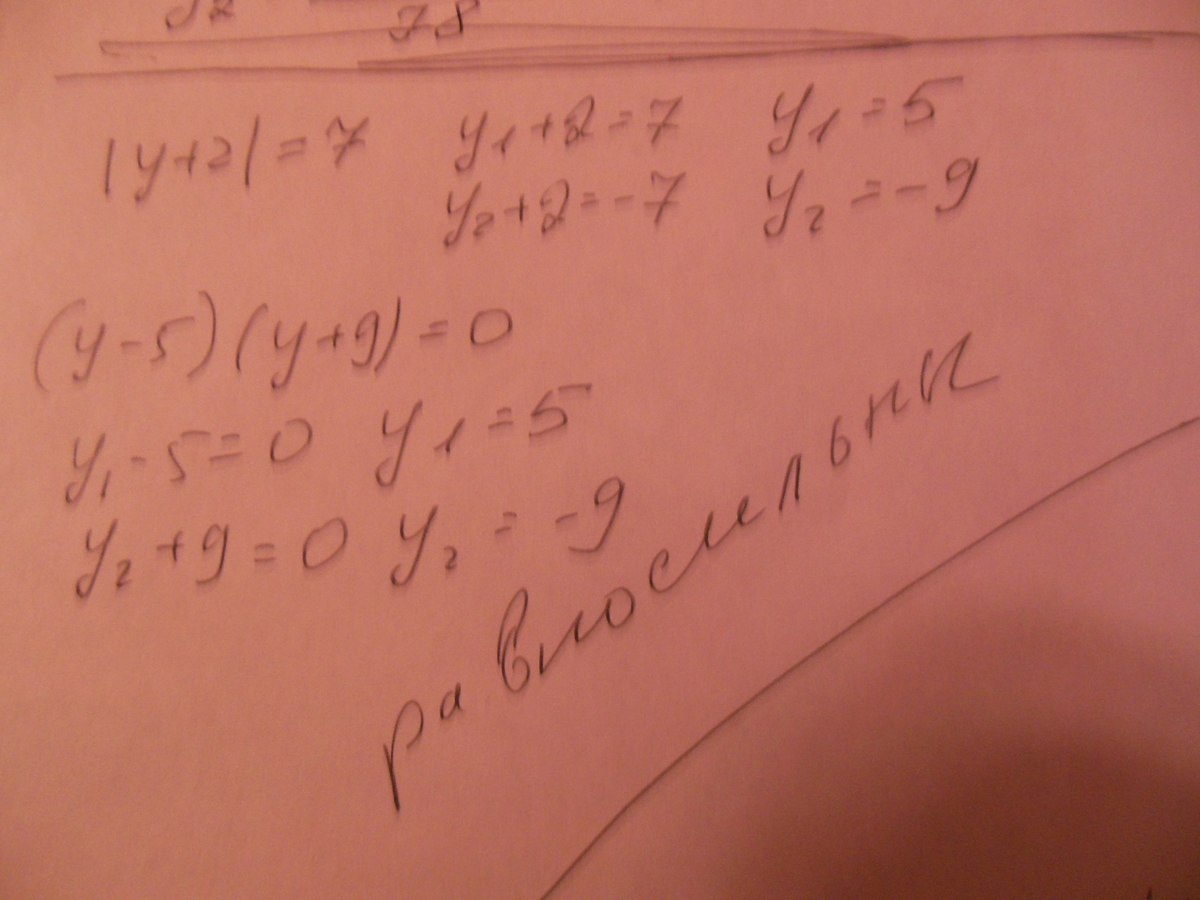 78
|y+2|=7 y₁+2=7 y₁=5
y₂+2=-7 y₂=-9
(y-5)(y+9)=0
y₁-5=0 y₁=5
y₂+9=0 y₂=-9
равносильны